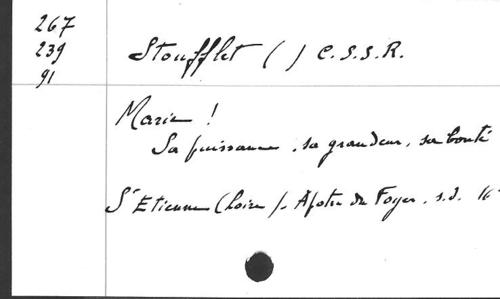 267
239
91
Stoufflet ( ) C.S.S.R.
Marie !
Sa puissance, sa grandeur, sa bonté
St Etienne (Loire). Apôtre du Foyer. s.d. 16